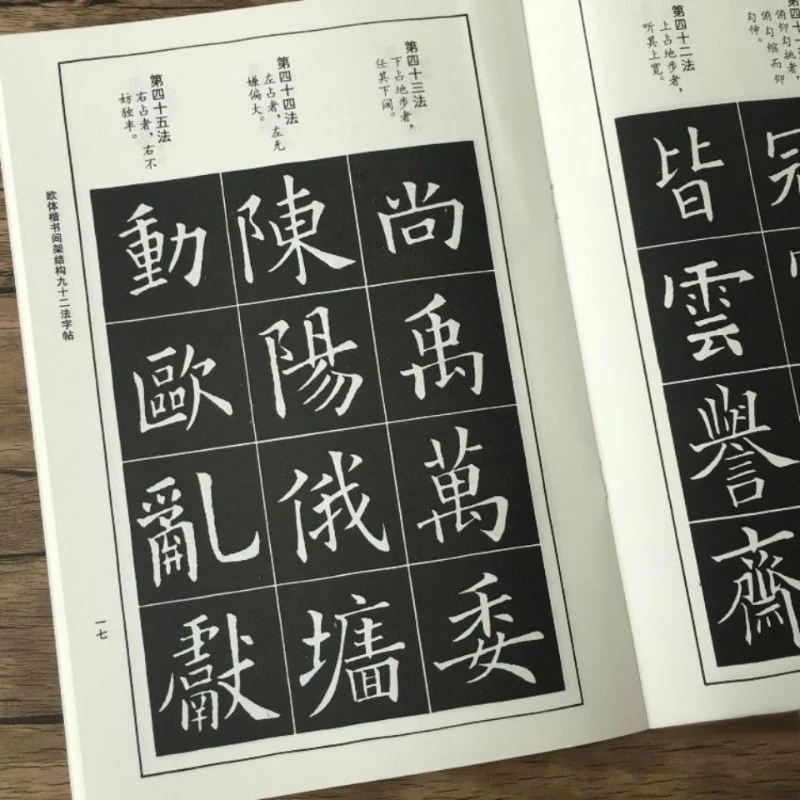 俯仰勾挑者，
俯勾缩而仰
勾伸。
冠
第四十二法
上占地步者，
听其上宽。
皆雲譽齋
第四十三法
下占地步者，
任其下阔。
尚禹萬委
第四十四法
左占者，左无
嫌偏大。
陳陽俄墻
第四十五法
右占者，右不
妨独丰。
動歐亂獻
欧体楷书间架结构九十二法字帖
一七